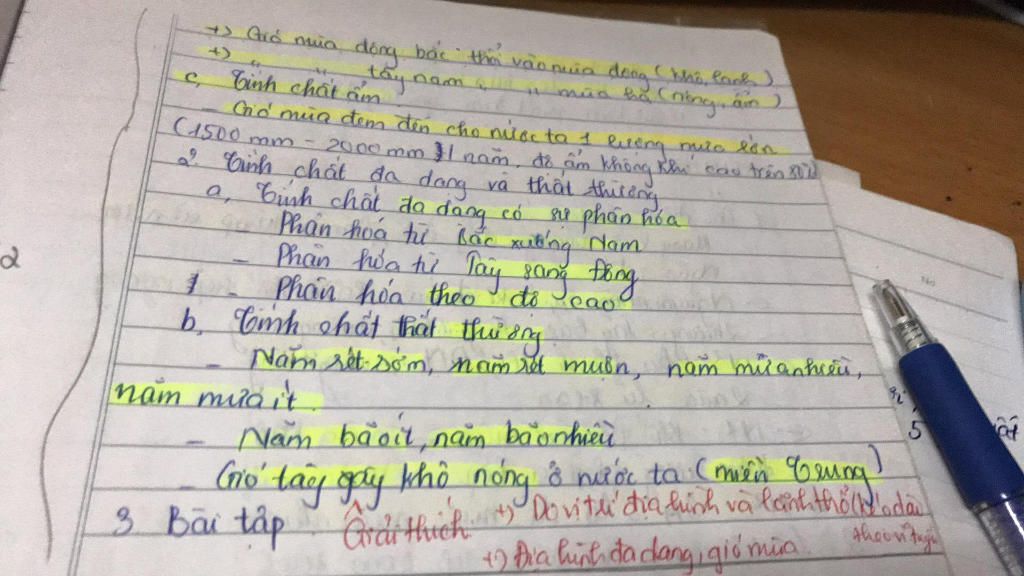 +) Gió mùa đông bắc thổi vào mùa đông (khô, lạnh)
+) " " tây nam " " mùa hạ (nóng, ẩm)
c, Tính chất ẩm
- Gió mùa đem đến cho nước ta 1 lượng mưa lớn
(1500 mm - 2000 mm / 1 năm, độ ẩm không khí cao trên 80%
2. Tính chất đa dạng và thất thường
a, Tính chất đa dạng có sự phân hóa
Phân hoá từ Bắc xuống Nam
- Phân hóa từ Tây sang Đông
- Phân hóa theo độ cao
b, Tính chất thất thường
- Năm rét sớm, năm rét muộn, năm mưa nhiều,
năm mưa ít
- Năm bão ít, năm bão nhiều
- Gió tây gây khô nóng ở nước ta (miền Trung)
3 Bài tập Giải thích +) Do vị trí địa hình và lãnh thổ kéo dài
theo vĩ tuyến
+) Địa hình đa dạng, gió mùa.
2
No
5